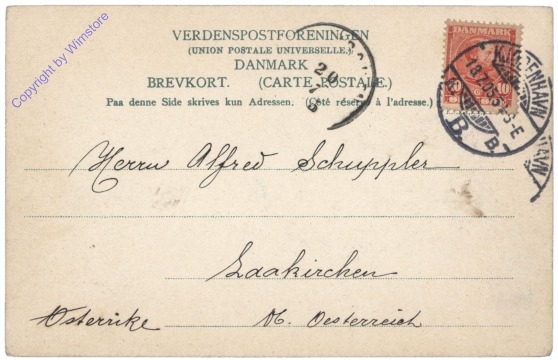 VERDENSPOSTFORENINGEN
(UNION POSTALE UNIVERSELLE.)
DANMARK
BREVKORT. (CARTE POSTALE.)
Paa denne Side skrives kun Adressen. (Côté réservé à l'adresse.)
DANMARK
10
KJØBENHAVN
B. B.
HAVN
20
7
Herrn Alfred Schuppler
Laakirchen
Österrike
Oesterreich
Copyright by Wimstore